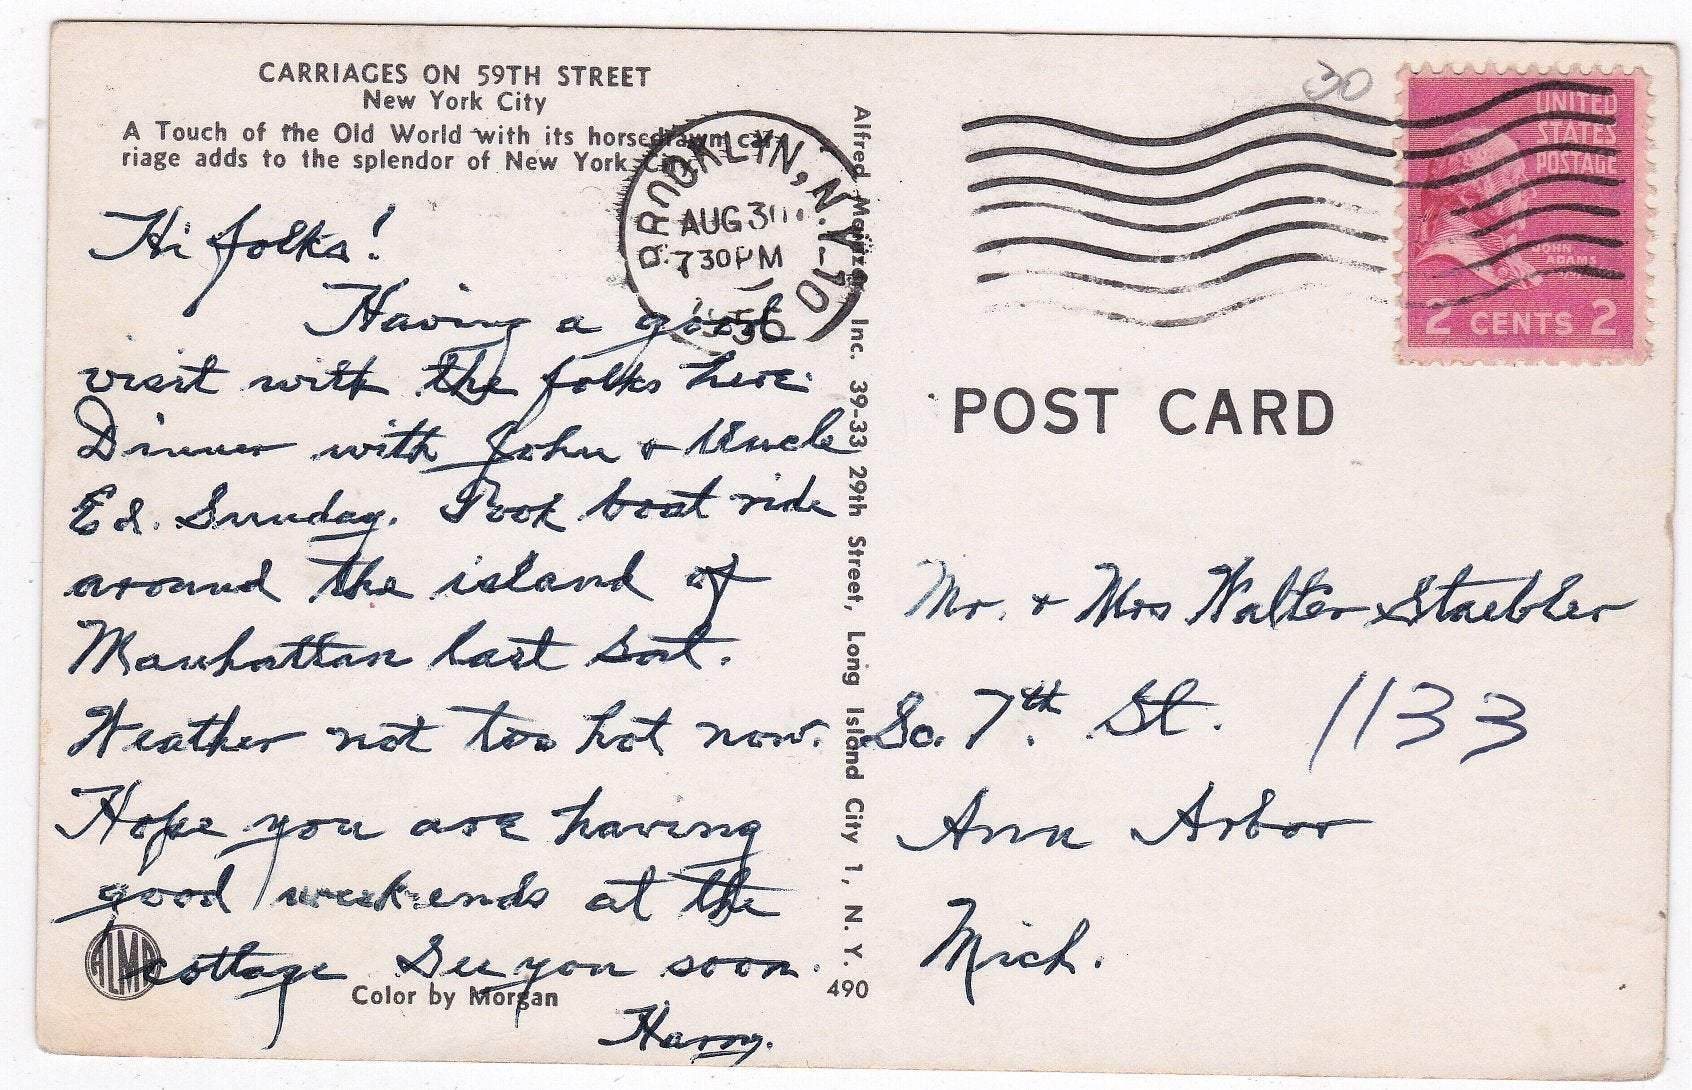 CARRIAGES ON 59TH STREET
New York City
A Touch of the Old World with its horsedrawn car-
riage adds to the splendor of New York City.
Hi folks!
Having a good
visit with the folks here.
Dinner with John & Uncle
Ed. Sunday. Took boat ride
around the island of
Manhattan last Sat.
Weather not too hot now.
Hope you are having
good weekends at the
cottage See you soon.
Harry.
ALMA
Color by Morgan
490
Alfred Mainzer, Inc. 39-33 29th Street, Long Island City 1, N. Y.
BROOKLYN, N.Y.-10
AUG 30
7 30 PM
1956
30
UNITED
STATES
POSTAGE
JOHN
ADAMS
2 CENTS 2
POST CARD
Mr. & Mrs Walter Staebler
So. 7th. St. 1133
Ann Arbor
Mich.